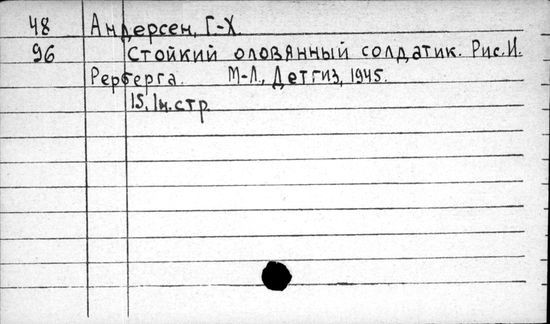 48 Андерсен, Г-Х.
96 Стойкий оловянный солдатик. Рис. И.
Рерберга. М-Л., Детгиз, 1945.
15, 1н. стр.